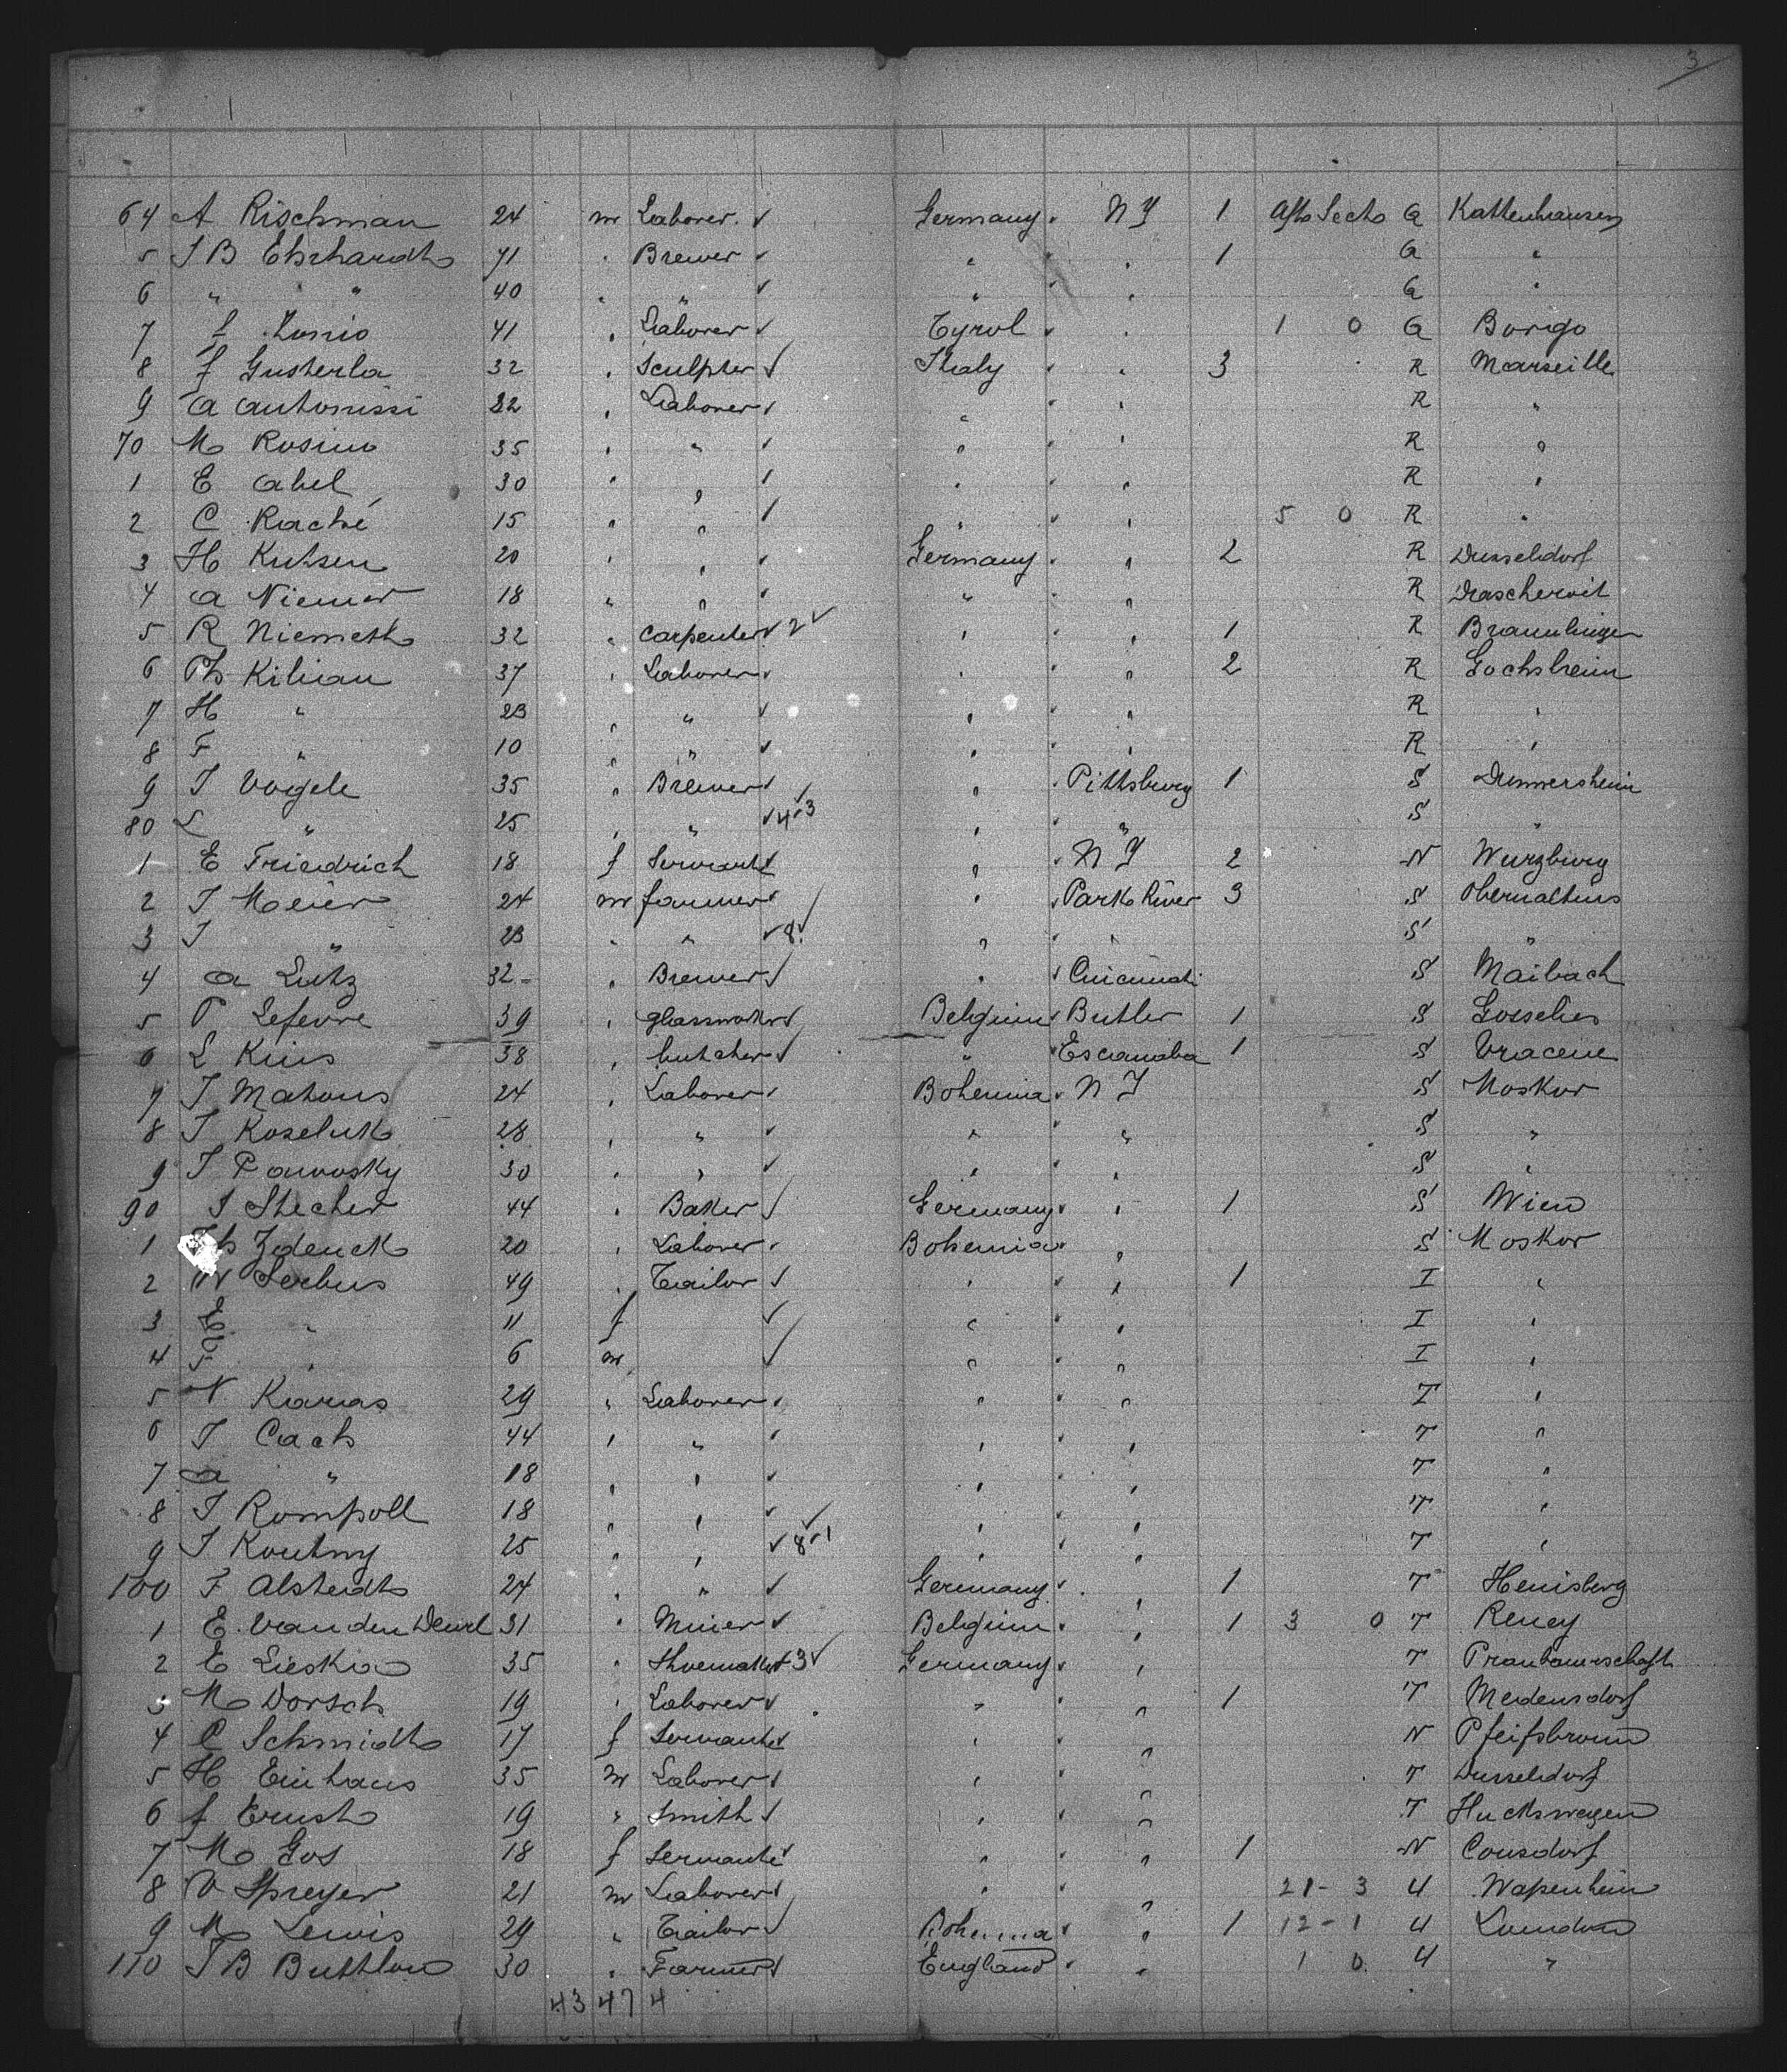 3
64 A Rischman 24 m Laborer Germany N Y 1 Aft Sect G Kattenhausen
5 J B Ehrhardt 41 " Brewer " " 1 G "
6 " " 40 " " " " G "
7 f Zonio 41 " Laborer Tyrol " 1 0 G Borgo
8 f Gusterla 32 " Sculpter Italy " 3 R Marseille
9 A Antonissi 22 " Laborer " " R "
70 M Rosino 35 " " " " R "
1 E Abel 30 " " " " R "
2 C Raché 15 " " " " 5 0 R "
3 H Kutsen 20 " " Germany " 2 R Dusseldorf
4 A Niemer 18 " " " " R
5 R Niemeth 32 " Carpenter 2 " " 1 R Braunlingen
6 Ph Kilian 37 " Laborer " " 2 R Gochsheim
7 H " 23 " " " " R "
8 F " 10 " " " " R "
9 J Vogele 35 " Brewer " Pittsburg 1 S Dummersheim
80 L " 25 " " 4 3 " " S "
1 E Friedrich 18 f Servant " N Y 2 N Wurzburg
2 J Meier 24 m farmer " Park River 3 S
3 J " 23 " " 8 " " S "
4 A Lutz 32 " Brewer " Cincinnati S Maibach
5 P Lefevre 39 " glassmaker Belgium Butler 1 S Gosselies
6 L Kius 38 " butcher " Escanaba 1 S Vracene
7 J Matous 24 " Laborer Bohemia N Y S Moskov
8 J Koseluk 28 " " " " S "
9 J Pavovsky 30 " " " " S "
90 J Stecher 44 " Baker Germany " 1 S Wien
1 Zdenek 20 " Laborer Bohemia " S Moskov
2 W Serbus 49 " Tailor " " 1 I "
3 E " 11 f " " I "
4 F " 6 m " " I "
5 N Karas 29 " Laborer " " T "
6 J Cach 44 " " " " T "
7 A " 18 " " " " T "
8 J Rompoll 18 " " " " T "
9 J Koutny 25 " " 8 1 " " T "
100 F Alstedt 24 " " Germany " 1 T Henisberg
1 E Van den Deurl 31 " Miner Belgium " 1 3 0 T Reney
2 E Lieska 35 " Shoemaker 3 Germany " T
3 M Dorsch 19 " Laborer " " 1 T Medensdorf
4 C Schmidt 17 f Servant " " N Pfeifsbronn
5 H Einhaus 35 m Laborer " " T Dusseldorf
6 f Ernst 19 " Smith " " T Huckswagen
7 M Gos 18 f Servant " " 1 N Consdorf
8 V Spreyer 21 m Laborer " " 21 - 3 4 Wapenheim
9 M Lewis 29 " Tailor Bohemia " 1 12 - 1 4 London
110 J B Buttlon 30 " Farmer England " 1 0 4 "
43 47 4